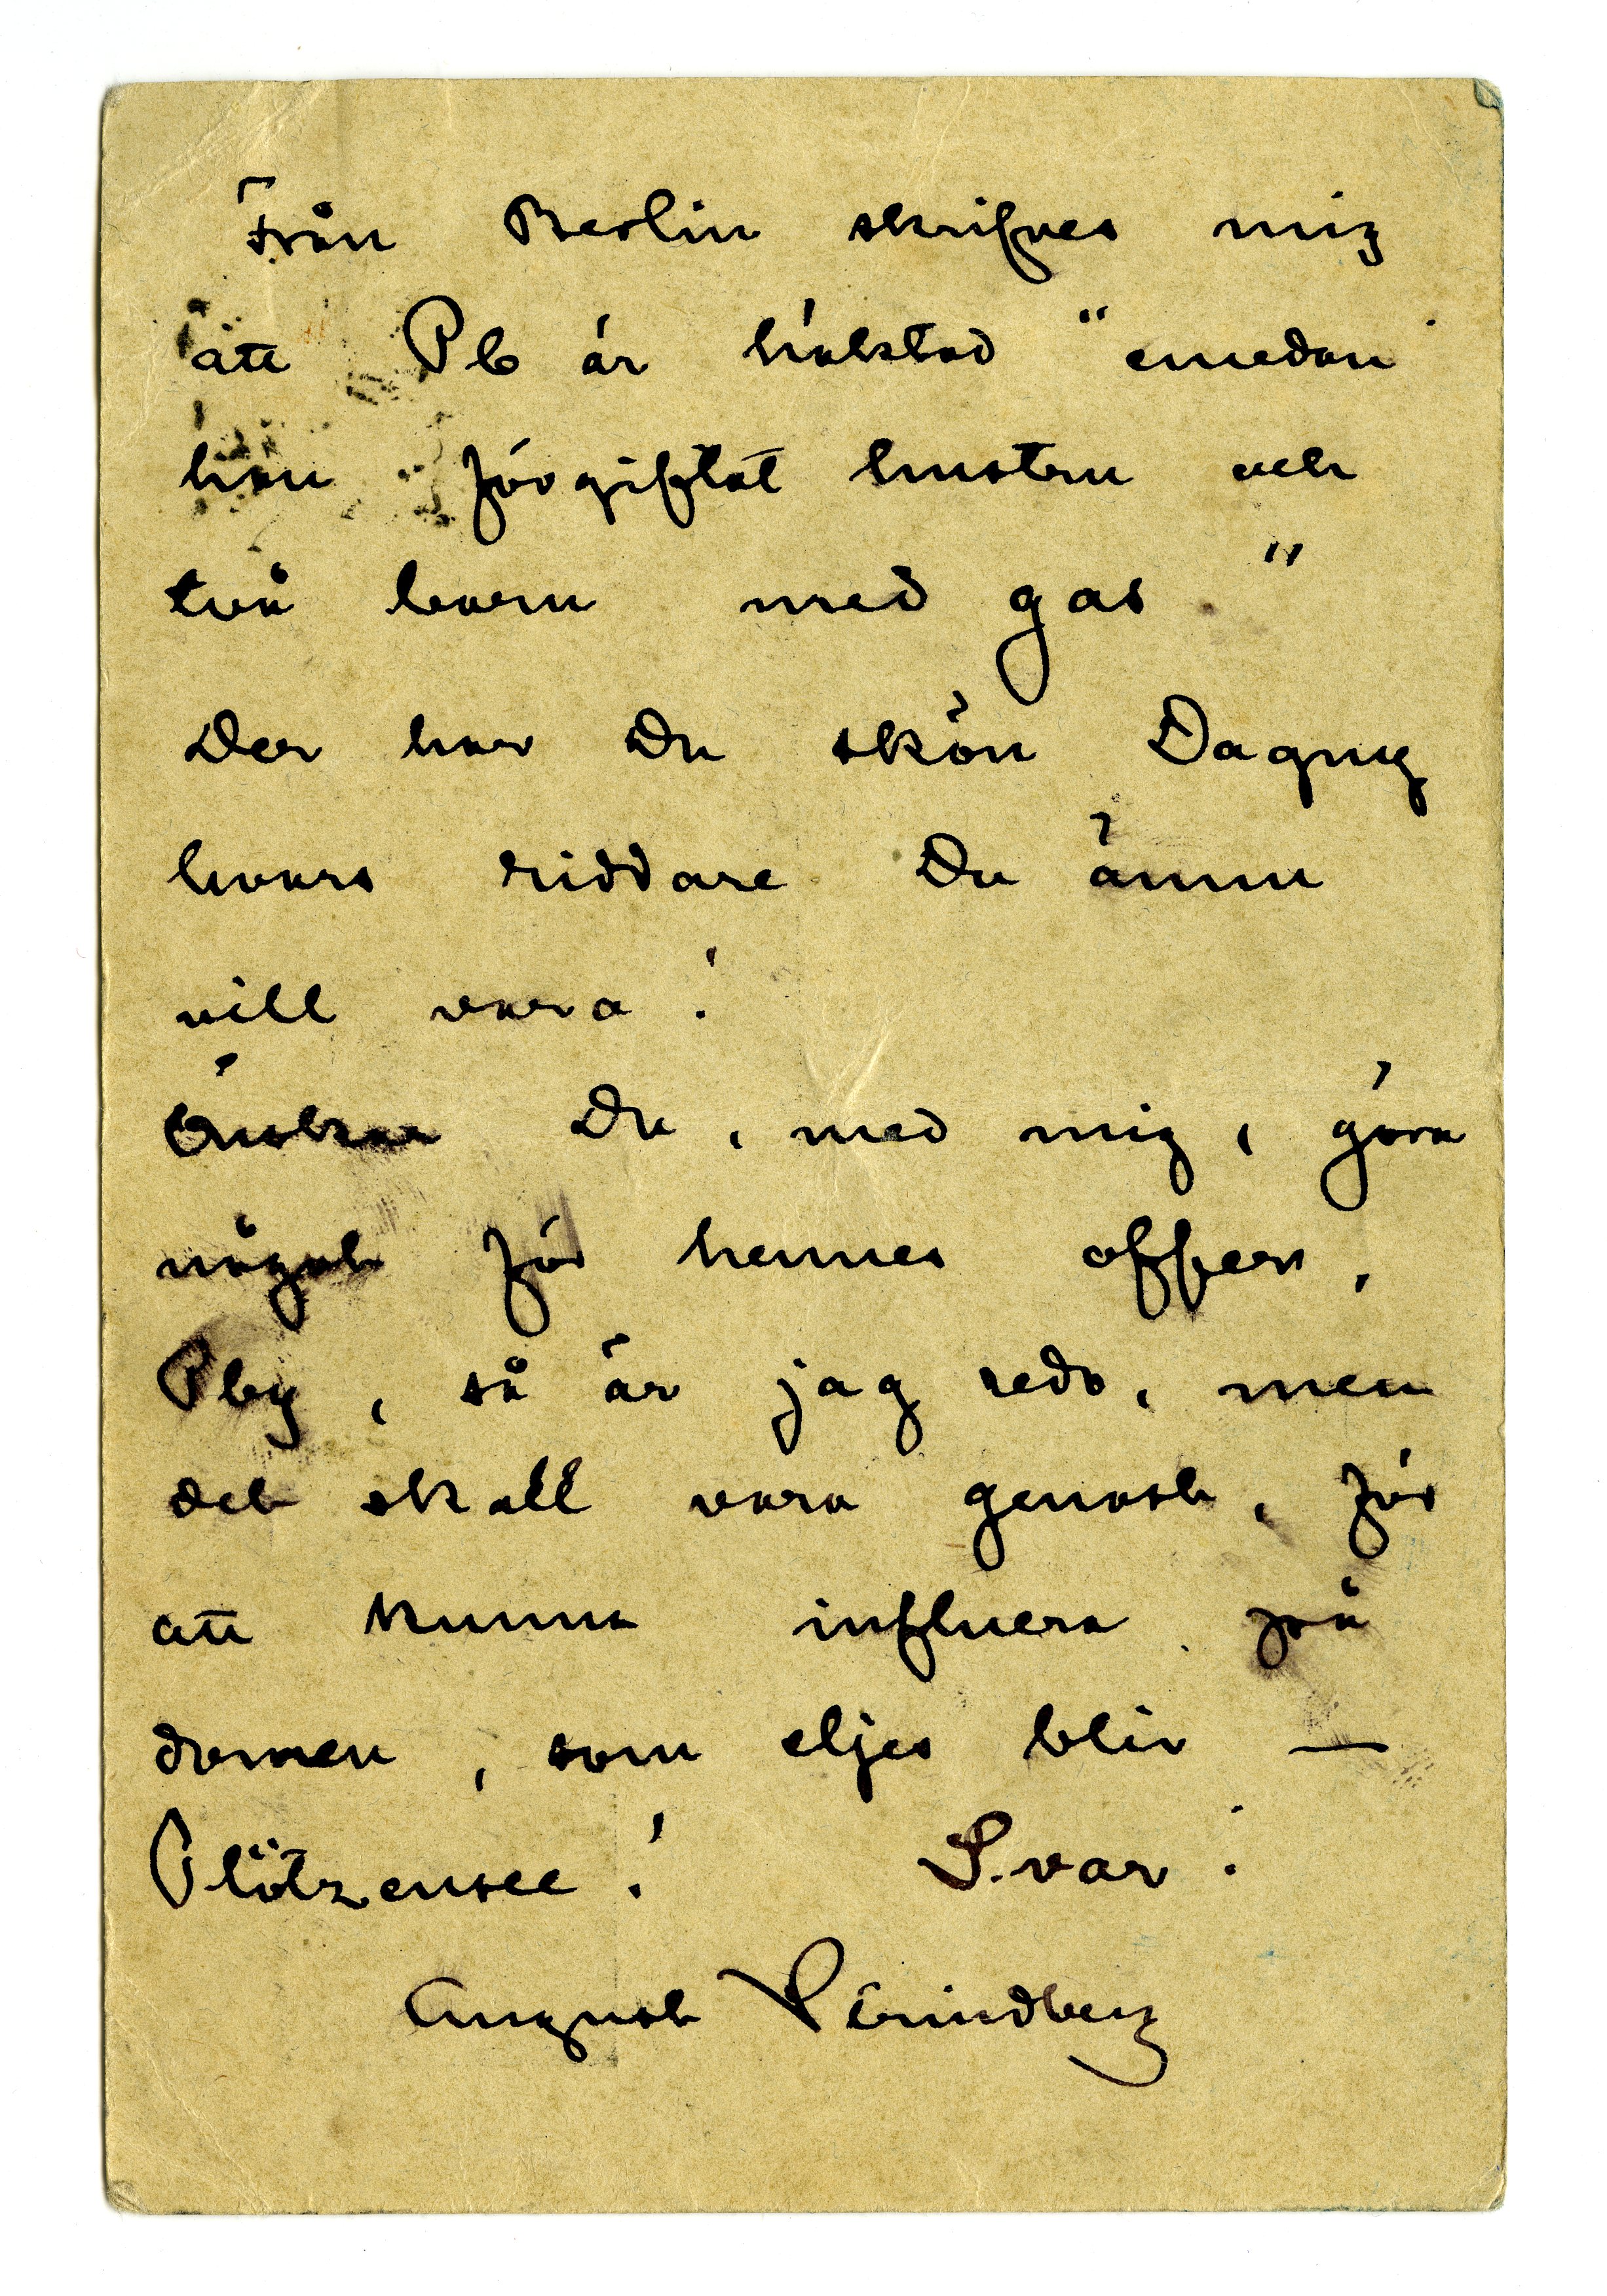 Från Berlin skrifves mig
att Pb är häktad "emedan
han förgiftat hustru och
två barn med gas"
Der har Du skön Dagny
hvars riddare Du ännu
vill vara!
Önskar Du, med mig, göra
något för hennes offer,
Pby, så är jag redo, men
det skall vara genast, för
att kunna influera på
domen, som eljes blir —
Plötzensee! Svar!
August Strindberg